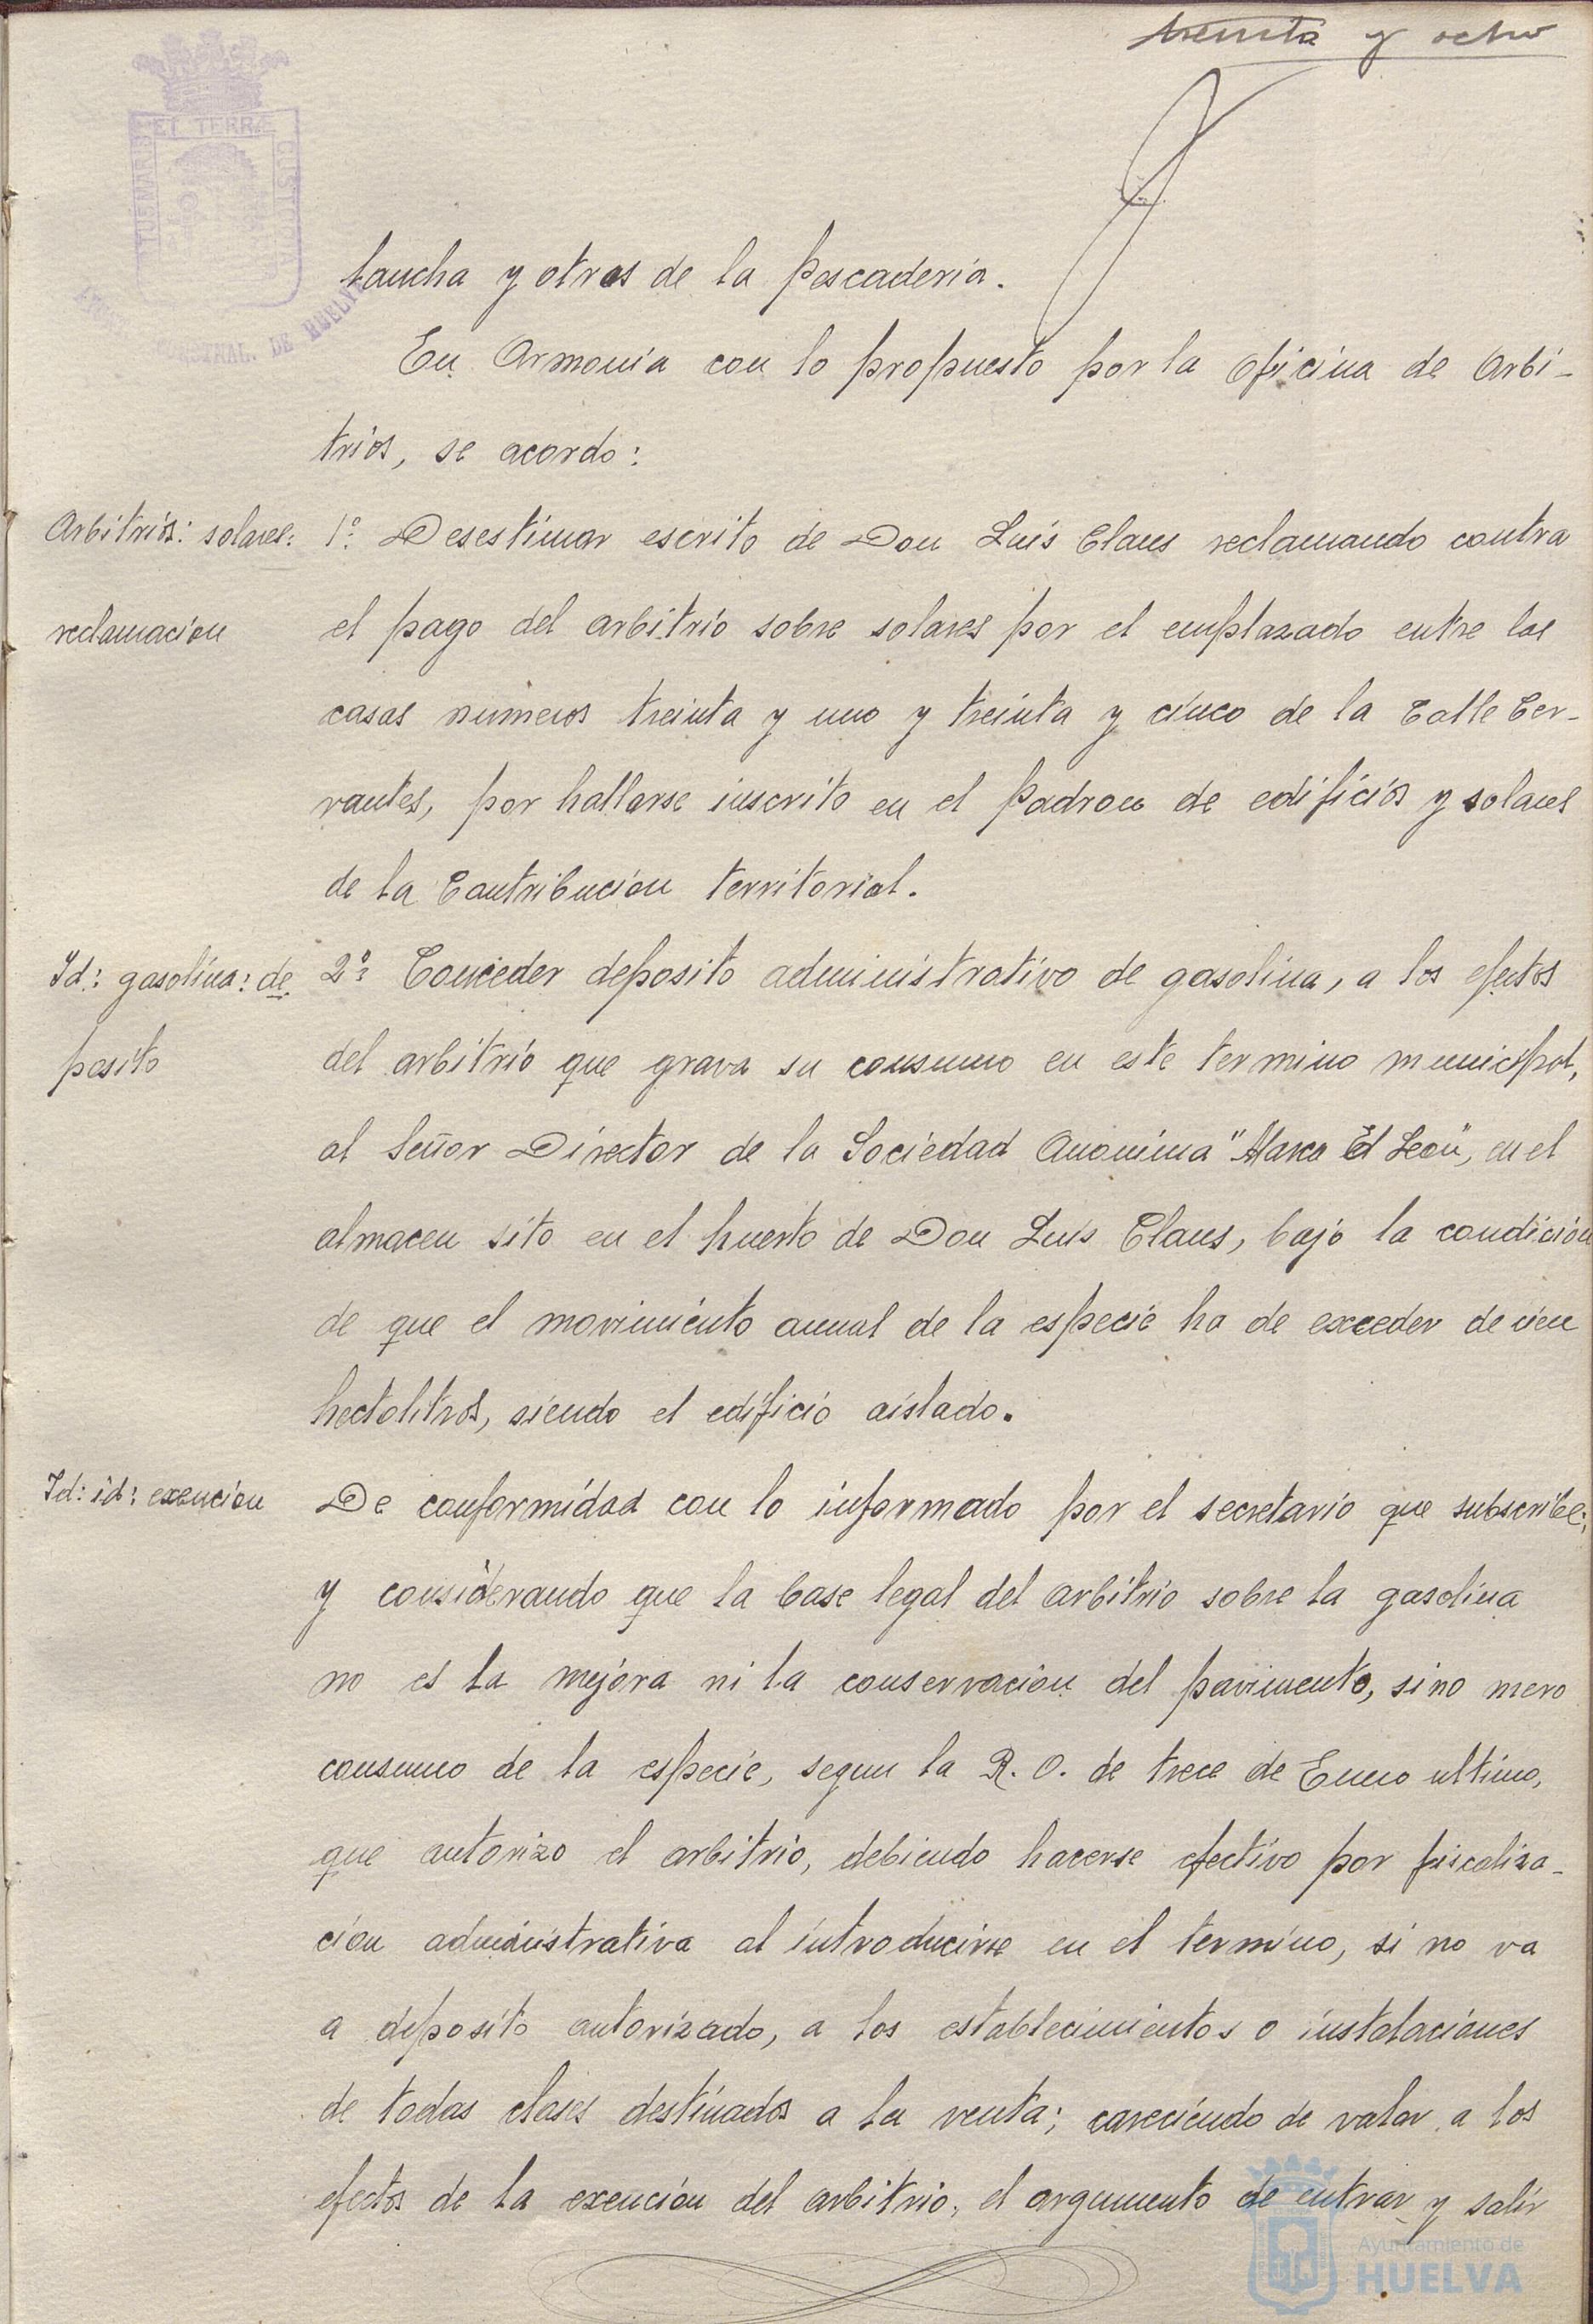 treinta y ocho
ET TERRÆ
PORTUS MARIS
CUSTODIA
MUNICIPAL. DE HUELVA
taucha y otros de la Pescaderia.
En Armonia con lo propuesto por la Oficina de Arbi-
trios, se acordo:
Arbitrios: solares: 1º. Desestimar escrito de Don Luis Claus reclamando contra
reclamacion el pago del arbitrio sobre solares por el emplazado entre las
casas numeros treinta y uno y treinta y cinco de la Calle Cer-
vantes, por hallarse inscrito en el Padron de edificios y solares
de la Contribucion territorial.
Id: gasolina: de 2º: Conceder deposito administrativo de gasolina, a los efectos
posito del arbitrio que grava su consumo en este termino municipal,
al Señor Director de la Sociedad Anonima "Marca El Leon", en el
almacen sito en el huerto de Don Luis Claus, bajo la condicion
de que el movimiento anual de la especie ha de exceder de cien
hectolitros, siendo el edificio aislado.
Id: id: exencion De conformidad con lo informado por el secretario que subscribe;
y considerando que la base legal del arbitrio sobre la gasolina
no es la mejora ni la conservacion del pavimento, sino mero
consumo de la especie, segun la R. O. de trece de Enero ultimo,
que autorizo el arbitrio, debiendo hacerse efectivo por fiscaliza-
cion administrativa al introducirse en el termino, si no va
a deposito autorizado, a los establecimientos o instalaciones
de todas clases destinados a la venta; careciendo de valor a los
efectos de la exencion del arbitrio, el argumento de entrar y salir
Ayuntamiento de
HUELVA